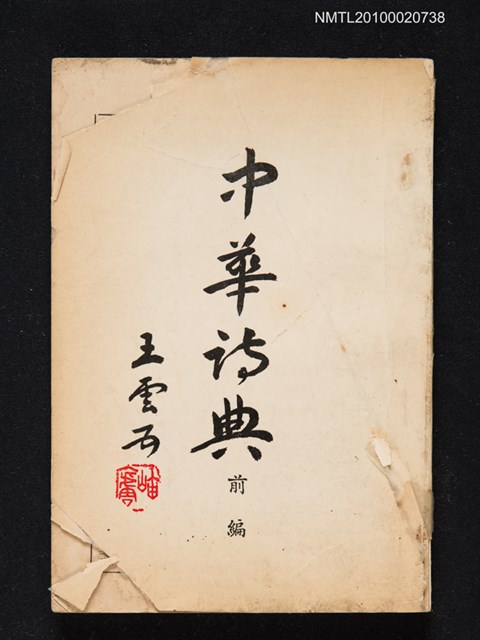 NMTL20100020738
中華詩典
前編
王雲五